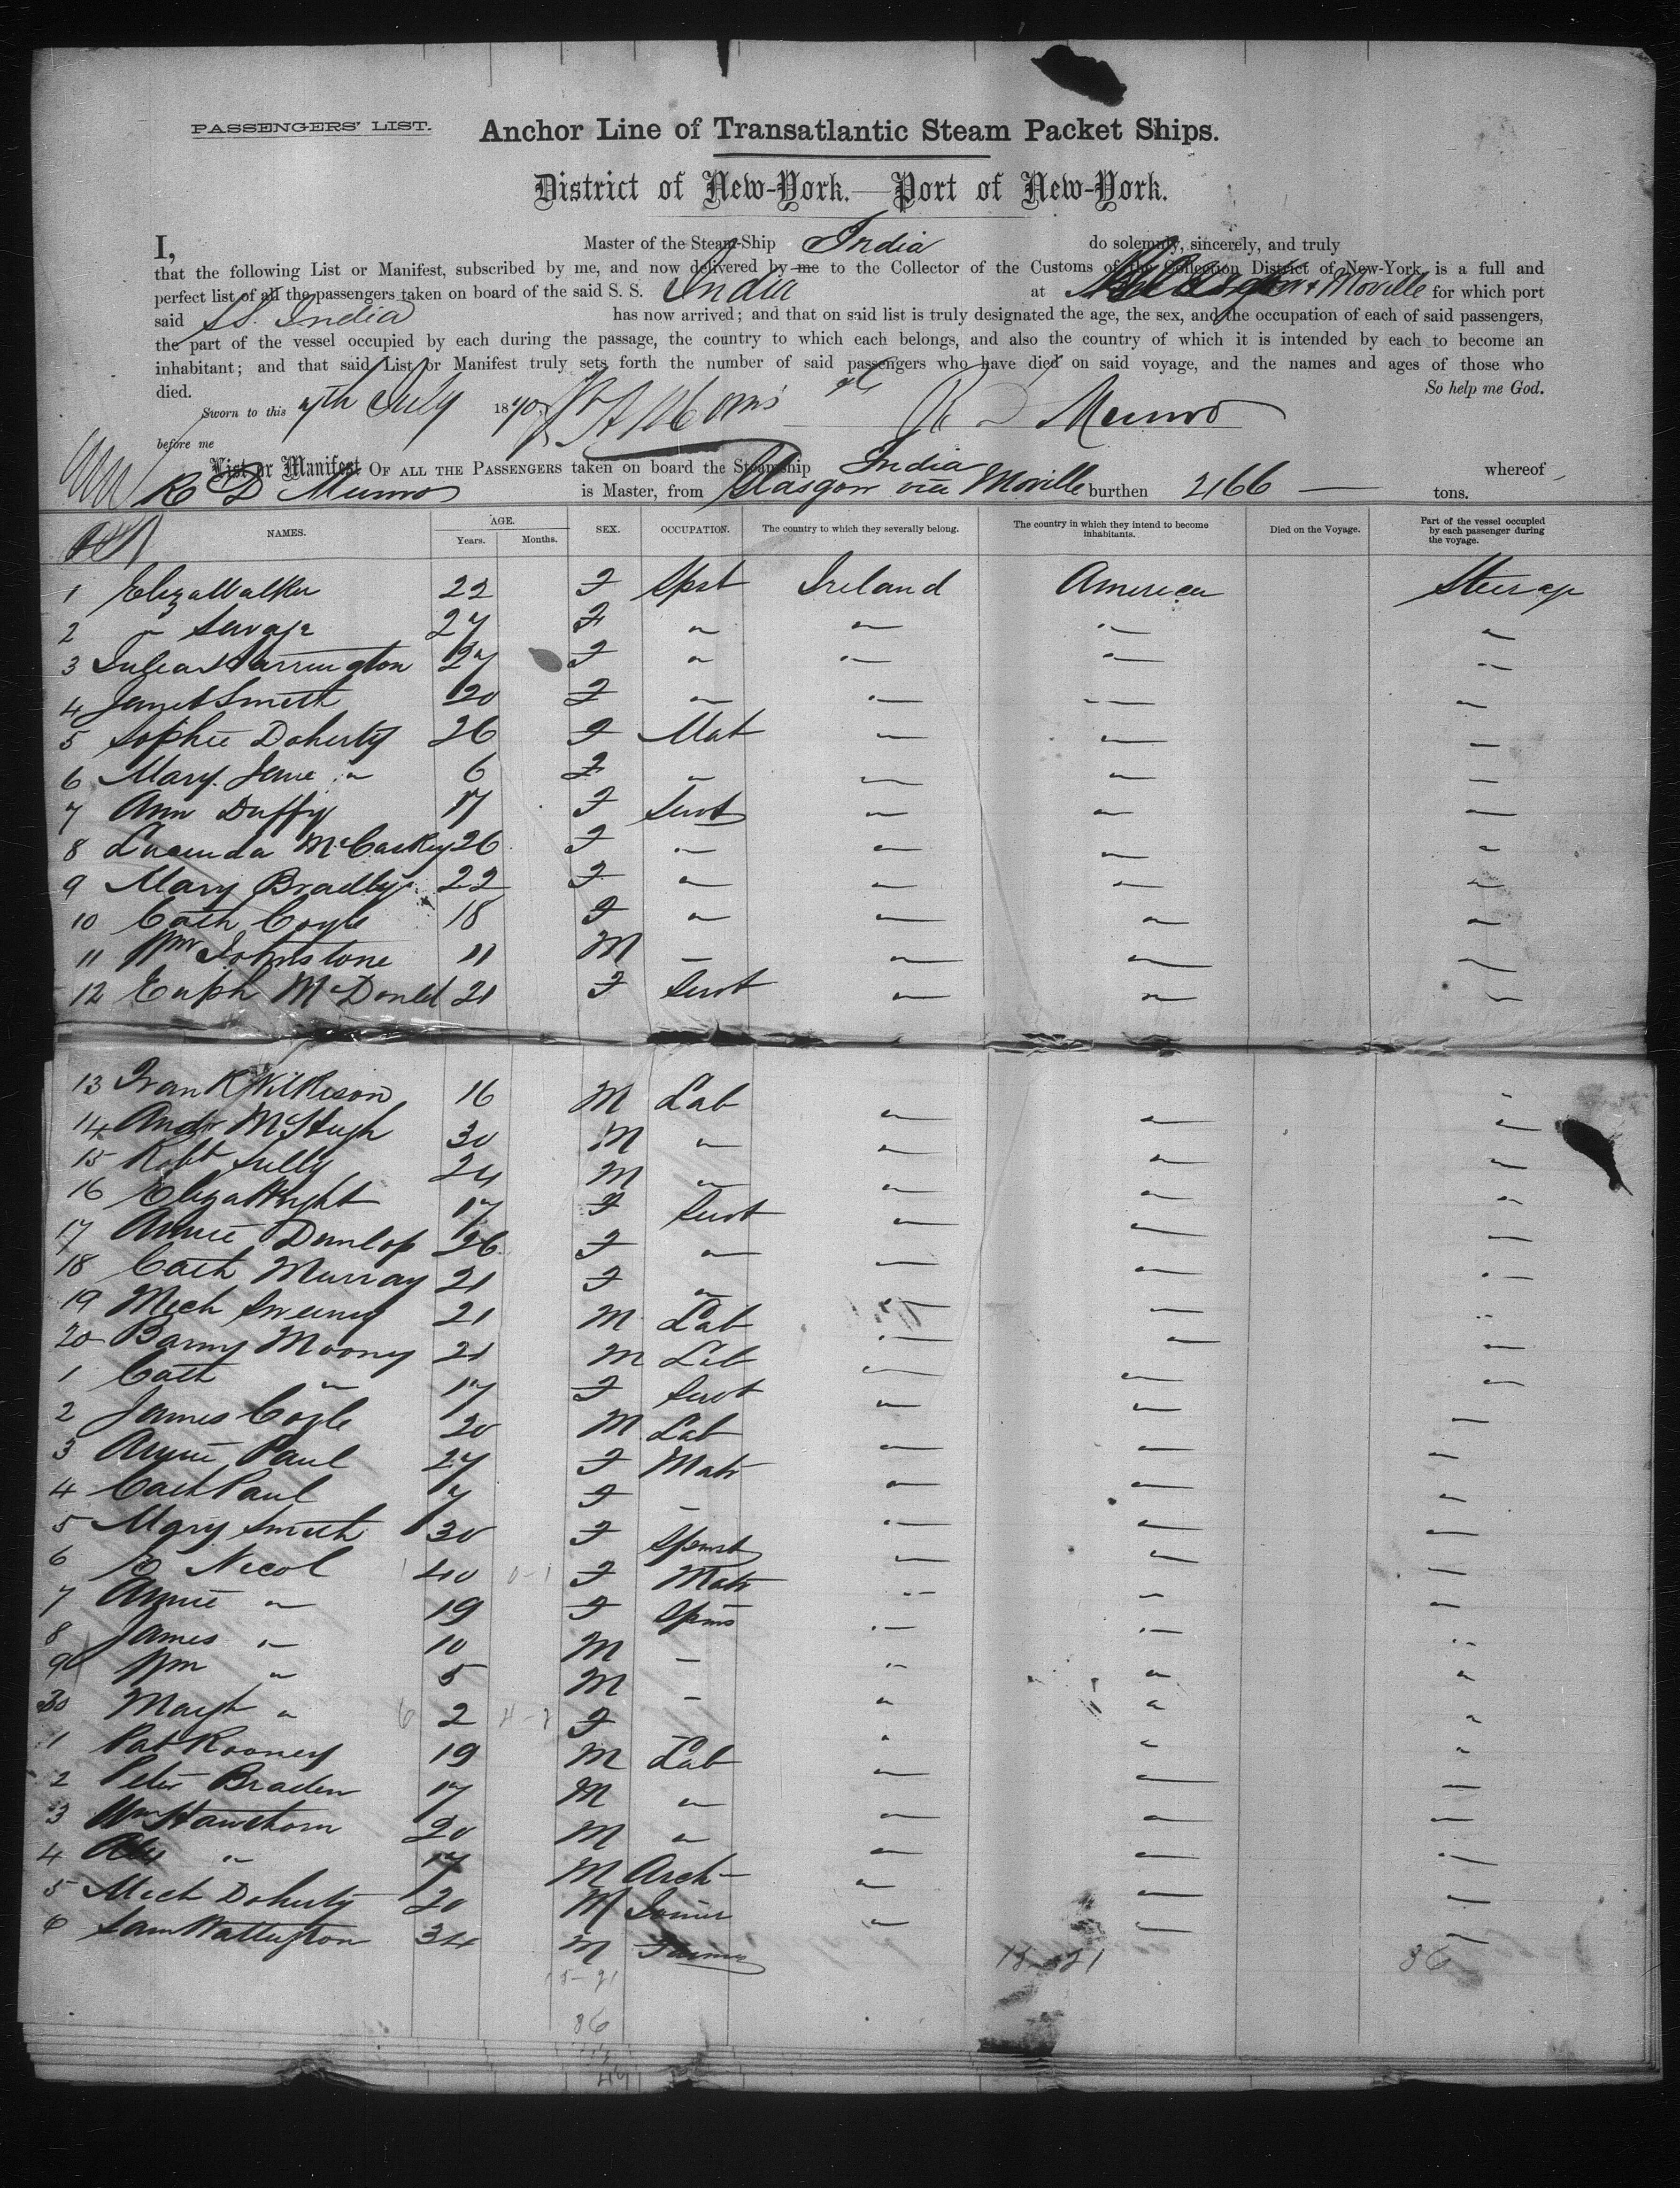 PASSENGERS' LIST.
Anchor Line of Transatlantic Steam Packet Ships.
District of New-York.—Port of New-York.
I, Master of the Steam-Ship India do solemnly, sincerely, and truly
that the following List or Manifest, subscribed by me, and now delivered by me to the Collector of the Customs of the Collection District of New-York, is a full and
perfect list of all the passengers taken on board of the said S. S. India at & Moville for which port
said SS. India has now arrived; and that on said list is truly designated the age, the sex, and the occupation of each of said passengers,
the part of the vessel occupied by each during the passage, the country to which each belongs, and also the country of which it is intended by each to become an
inhabitant; and that said List or Manifest truly sets forth the number of said passengers who have died on said voyage, and the names and ages of those who
died. So help me God.
Sworn to this 7th July 1870 R D Munro
before me
List or Manifest OF ALL THE PASSENGERS taken on board the Steamship India whereof
R D Munro is Master, from Glasgow via Moville burthen 2166 — tons.
NAMES. AGE. Years. Months. SEX. OCCUPATION. The country to which they severally belong. The country in which they intend to become inhabitants. Died on the Voyage. Part of the vessel occupied by each passenger during the voyage.
1 Eliza Walker 22 F Spst Ireland America Steerage
2 " Savage 27 F " " " "
3 Julia Harrington 27 F " " " "
4 Janet Smith 20 F " " " "
5 Sophie Doherty 26 F Mat " " "
6 Mary Jane " 6 F " " " "
7 Ann Duffy 17 F Servt " " "
8 Lucinda McCaskey 26 F " " " "
9 Mary Bradley 22 F " " " "
10 Cath Coyle 18 F " " " "
11 Wm Johnstone 11 M — " " "
12 Euph McDonld 21 F Servt " " "
13 Frank Wilkeson 16 M Lab " " "
14 Andr McHugh 30 M " " " "
15 Robt Lully 24 M " " " "
16 Eliza Wright 17 F Servt " " "
17 Annie Dunlop 26 F " " " "
18 Cath Murray 21 F " " " "
19 Mich Sweeney 21 M Lab " " "
20 Barny Mooney 21 M Lab " " "
1 Cath " 17 F Servt " " "
2 James Coyle 20 M Lab " " "
3 Annie Paul 27 F Matr " " "
4 Cath Paul 7 F — " " "
5 Mary Smith 30 F Spinst " " "
6 Nicol 40 F Matr " " "
7 Annie " 19 F Spins " " "
8 James " 10 M — " " "
9 Wm " 5 M — " " "
30 Margt " 2 F — " " "
1 Pat Rooney 19 M Lab " " "
2 Peter Braden 17 M " " " "
3 Wm Hawthorn 20 M " " " "
4 Alex " 17 M Arch " " "
5 Mich Doherty 20 M Joiner " " "
6 Sam Wattington 34 M Farmer " " "
15-21 36
15-21
36